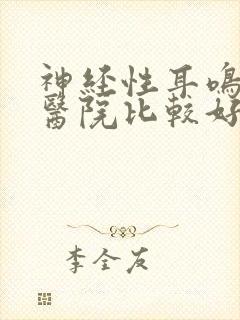 神经性耳鳴
醫院比較好
李全友